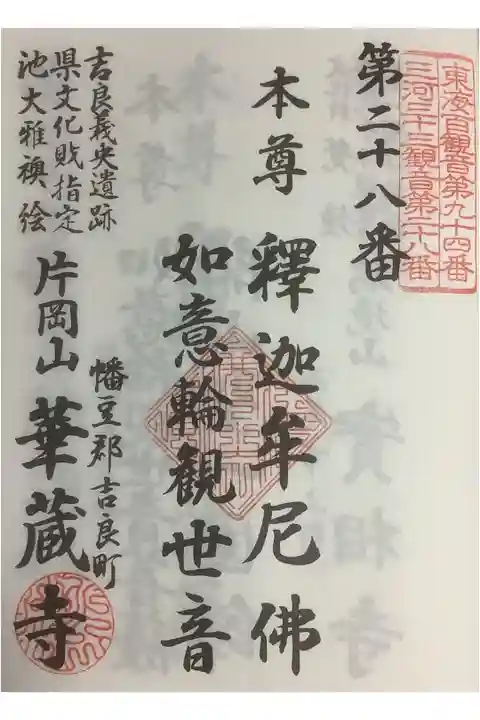 東海百観音第九十四番
三河三十三観音第二十八番
第二十八番
本尊 釋迦牟尼佛
如意輪觀世音
幡豆郡吉良町
吉良義央遺跡
県文化財指定
池大雅襖絵
片岡山 華蔵寺